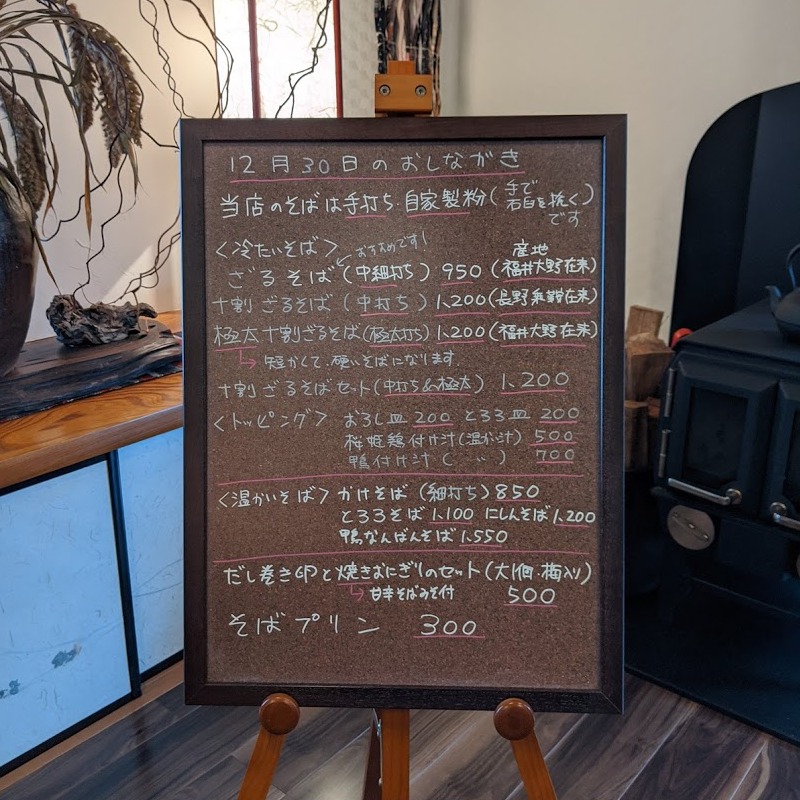 12月30日のおしながき
当店のそばは手打ち・自家製粉(手で石臼を挽くです)
<冷たいそば> おすすめです! 産地
ざるそば(中細打ち) 950 (福井大野在来)
十割ざるそば(中打ち) 1,200(長野乗鞍在来)
極太十割ざるそば(極太打ち) 1,200(福井大野在来)
→短かくて、硬いそばになります
十割ざるそばセット(中打ち&極太) 1,200
<トッピング> おろし皿 200 とろろ皿 200
桜姫鶏付け汁(温か汁) 500
鴨付け汁( 〃 ) 700
<温かいそば> かけそば (細打ち) 850
とろろそば 1,100 にしんそば 1,200
鴨なんばんそば 1,550
だし巻き卵と焼きおにぎりのセット(大1個・梅入り)
→甘辛そばみそ付 500
そばプリン 300